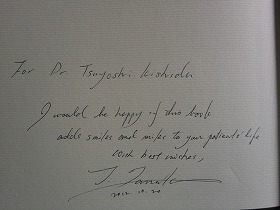 For Dr Tsuyoshi Kishida
I would be happy if this book
adds smiles and miles to your patients' life
With best wishes,
2012. 10. 20